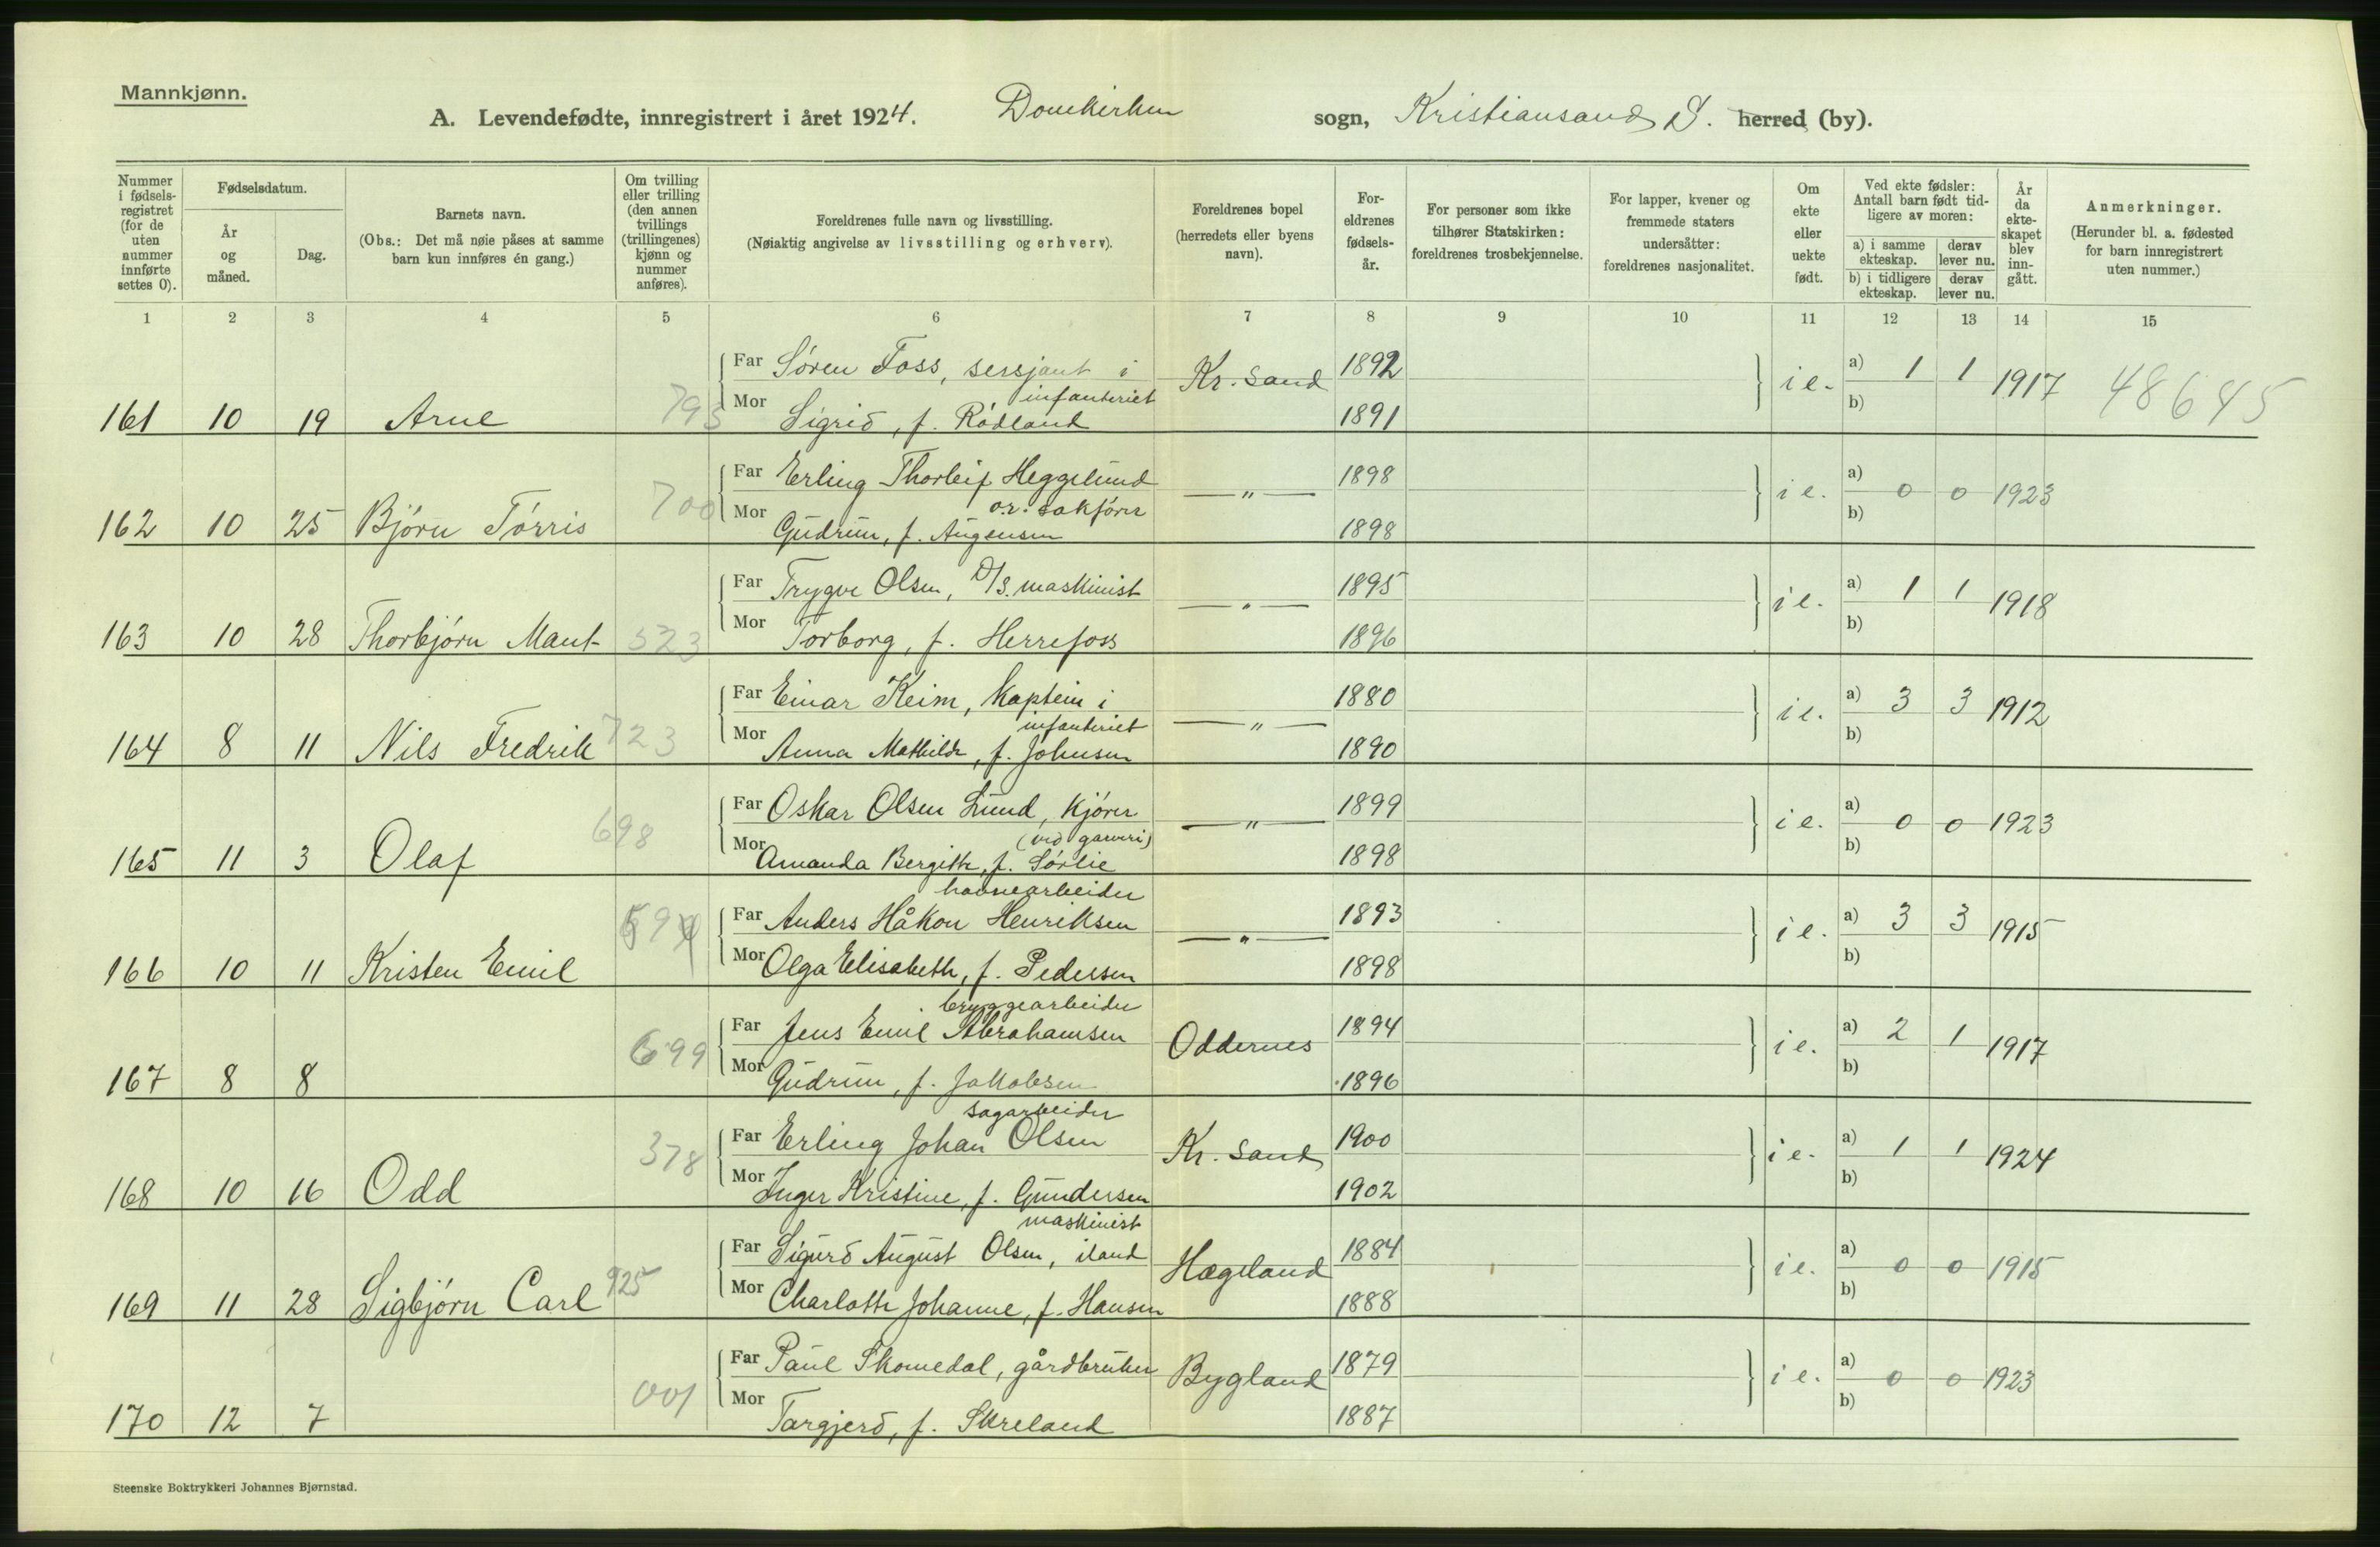 Mannkjønn.
A. Levendefødte, innregistrert i året 1924. Domkirken sogn, Kristiansand S. herred (by).
Nummer i fødsels-registret (for de uten nummer innførte settes 0).
Fødselsdatum.
År og måned.
Dag.
Barnets navn.
(Obs.: Det må nøie påses at samme barn kun innføres én gang.)
Om tvilling eller trilling (den annen tvillings (trillingenes) kjønn og nummer anføres).
Foreldrenes fulle navn og livsstilling.
(Nøiaktig angivelse av livsstilling og erhverv).
Foreldrenes bopel (herredets eller byens navn).
For-eldrenes fødsels-år.
For personer som ikke tilhører Statskirken: foreldrenes trosbekjennelse.
For lapper, kvener og fremmede staters undersåtter: foreldrenes nasjonalitet.
Om ekte eller uekte født.
Ved ekte fødsler: Antall barn født tid-ligere av moren:
a) i samme ekteskap.
derav lever nu.
b) i tidligere ekteskap.
derav lever nu.
År da ekte-skapet blev inn-gått.
Anmerkninger.
(Herunder bl. a. fødested for barn innregistrert uten nummer.)
1 2 3 4 5 6 7 8 9 10 11 12 13 14 15
Far Søren Foss, sersjant i Kr. sand 1892 i e. a) 1 1 1917 48645
infanteriet
161 10 19 Arne 795 Mor Sigrid, f. Rødland 1891 b)
Far Erling Thorleif Heggelund —"— 1898 i e. a) 0 0 1923
o.r. sakfører
162 10 25 Bjørn Tørris 700 Mor Gudrun, f. Augensen 1898 b)
Far Trygve Olsen, D/S. maskinist —"— 1895 i e. a) 1 1 1918
163 10 28 Thorbjørn Maut 523 Mor Torborg, f. Herrefoss 1896 b)
Far Einar Keim, kaptein i —"— 1880 i e. a) 3 3 1912
infanteriet
164 8 11 Nils Fredrik 723 Mor Anna Mathilde, f. Johnsen 1890 b)
Far Oskar Olsen Lund, kjører —"— 1899 i e. a) 0 0 1923
(ved garveri)
165 11 3 Olaf 698 Mor Amanda Bergitte, f. Sørlie 1898 b)
havnearbeider
Far Anders Håkon Henriksen —"— 1893 i e. a) 3 3 1915
166 10 11 Kristen Emil Mor Olga Elisabeth, f. Pedersen 1898 b)
bryggearbeider
Far Jens Emil Abrahamsen Oddernes 1894 i e. a) 2 1 1917
167 8 8 699 Mor Gudrun, f. Jakobsen 1896 b)
sagarbeider
Far Erling Johan Olsen Kr. sand 1900 i e. a) 1 1 1924
168 10 16 Odd 378 Mor Inger Kristine, f. Gundersen 1902 b)
maskinist
Far Sigurd August Olsen, iland Hægeland 1884 i e. a) 0 0 1915
169 11 28 Sigbjørn Carl 925 Mor Charlotte Johanne, f. Hansen 1888 b)
Far Paul Skomedal, gårdbruker Bygland 1879 i e. a) 0 0 1923
170 12 7 001 Mor Targjerd, f. Skreland 1887 b)
Steenske Boktrykkeri Johannes Bjørnstad.